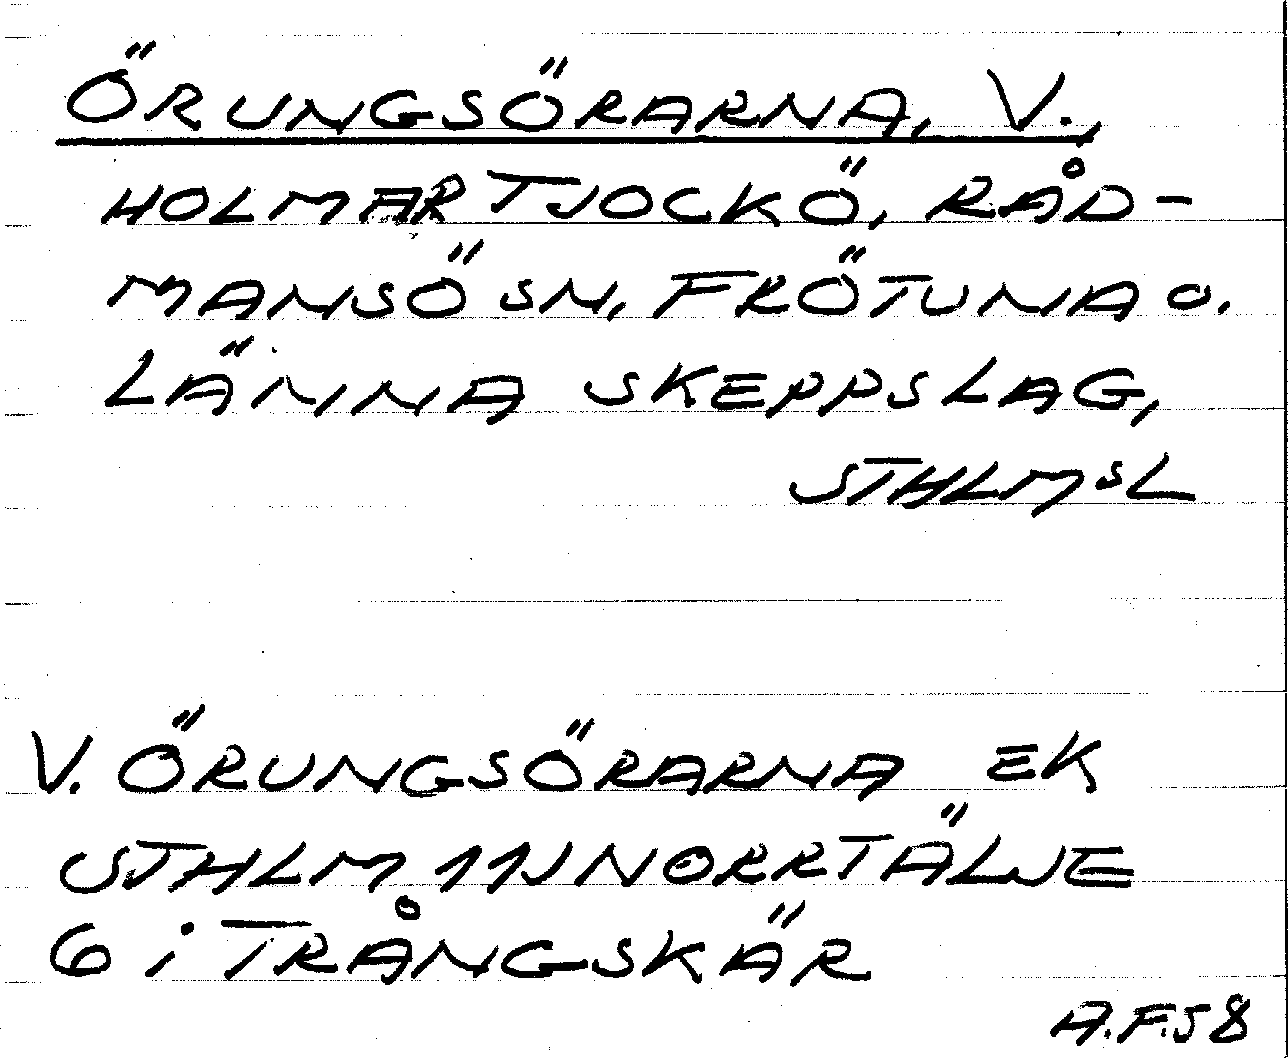 ÖRUNGSÖRARNA, V.,
HOLMAR TJOCKÖ, RÅD-
MANSÖ SN, FRÖTUNA O.
LÄNNA SKEPPSLAG,
STHLMSL
V. ÖRUNGSÖRARNA EK
STHLM 11J NORRTÄLJE
6 i TRÅNGSKÄR
A.F.58